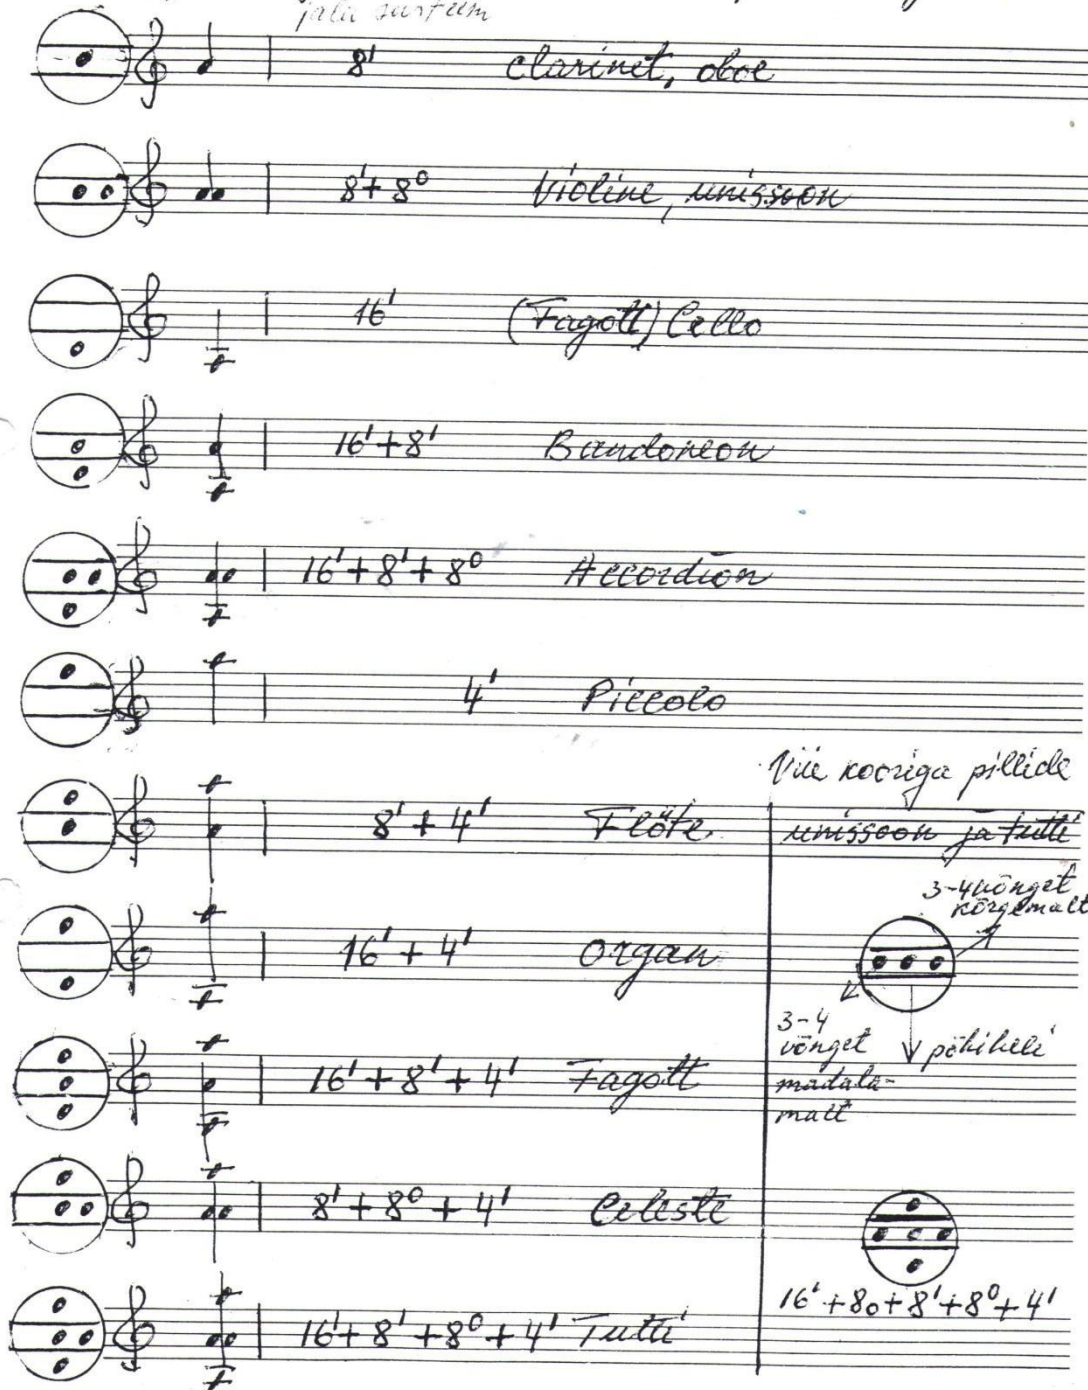 jala süsteem
8' Clarinet, oboe
8'+8° Violine, unissoon
16' (Fagott) Cello
16'+8' Bandoneon
16'+8'+8° Accordion
4' Piccolo
8'+4' Flöte
16'+4' organ
16'+8'+4' Fagott
8'+8°+4' Celeste
16'+8'+8°+4' Tutti
Viie kooriga pillide
unissoon ja tutti
3-4 võnget
kõrgemalt
3-4
võnget
madala-
malt
põhiheli
16'+8o+8'+8°+4'